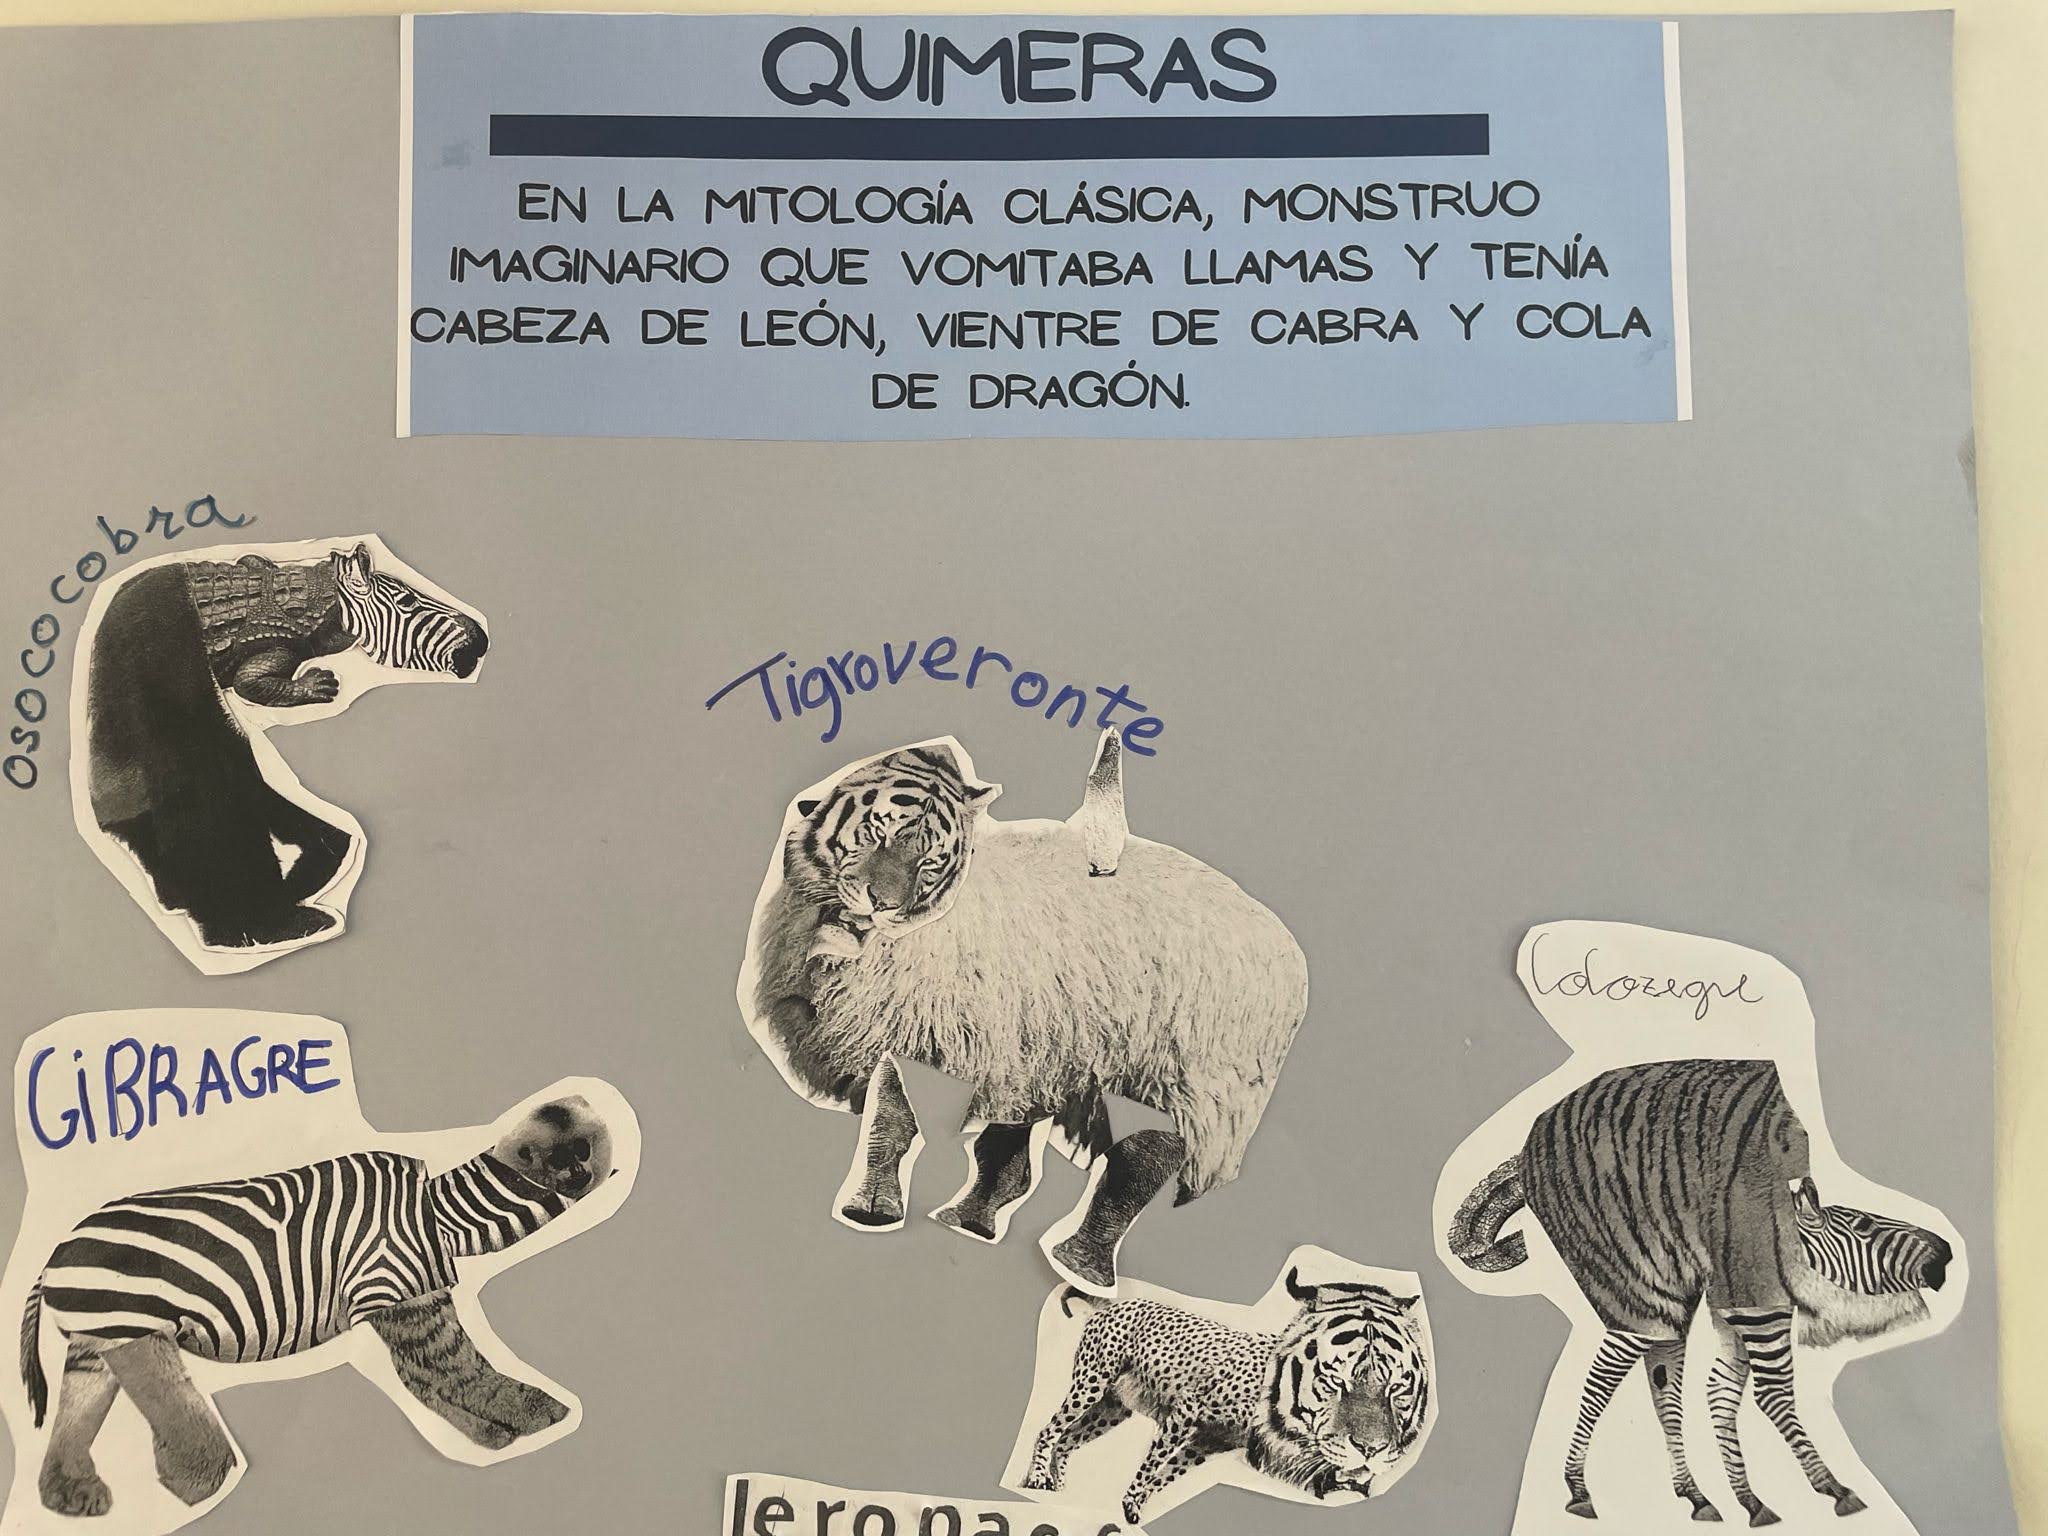 QUIMERAS
EN LA MITOLOGÍA CLÁSICA, MONSTRUO
IMAGINARIO QUE VOMITABA LLAMAS Y TENÍA
CABEZA DE LEÓN, VIENTRE DE CABRA Y COLA
DE DRAGÓN.
osococobra
Tigroveronte
GiBRAGRE